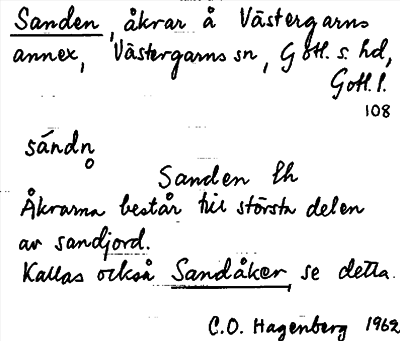 Sanden, åkrar å Västergarns
annex, Västergarns sn, Gotl. s. hd,
Gotl. l.
108
sándn̥
Sanden lh
Åkrarna består till största delen
av sandjord.
Kallas också Sandåker, se detta.
C.O. Hagenberg 1962